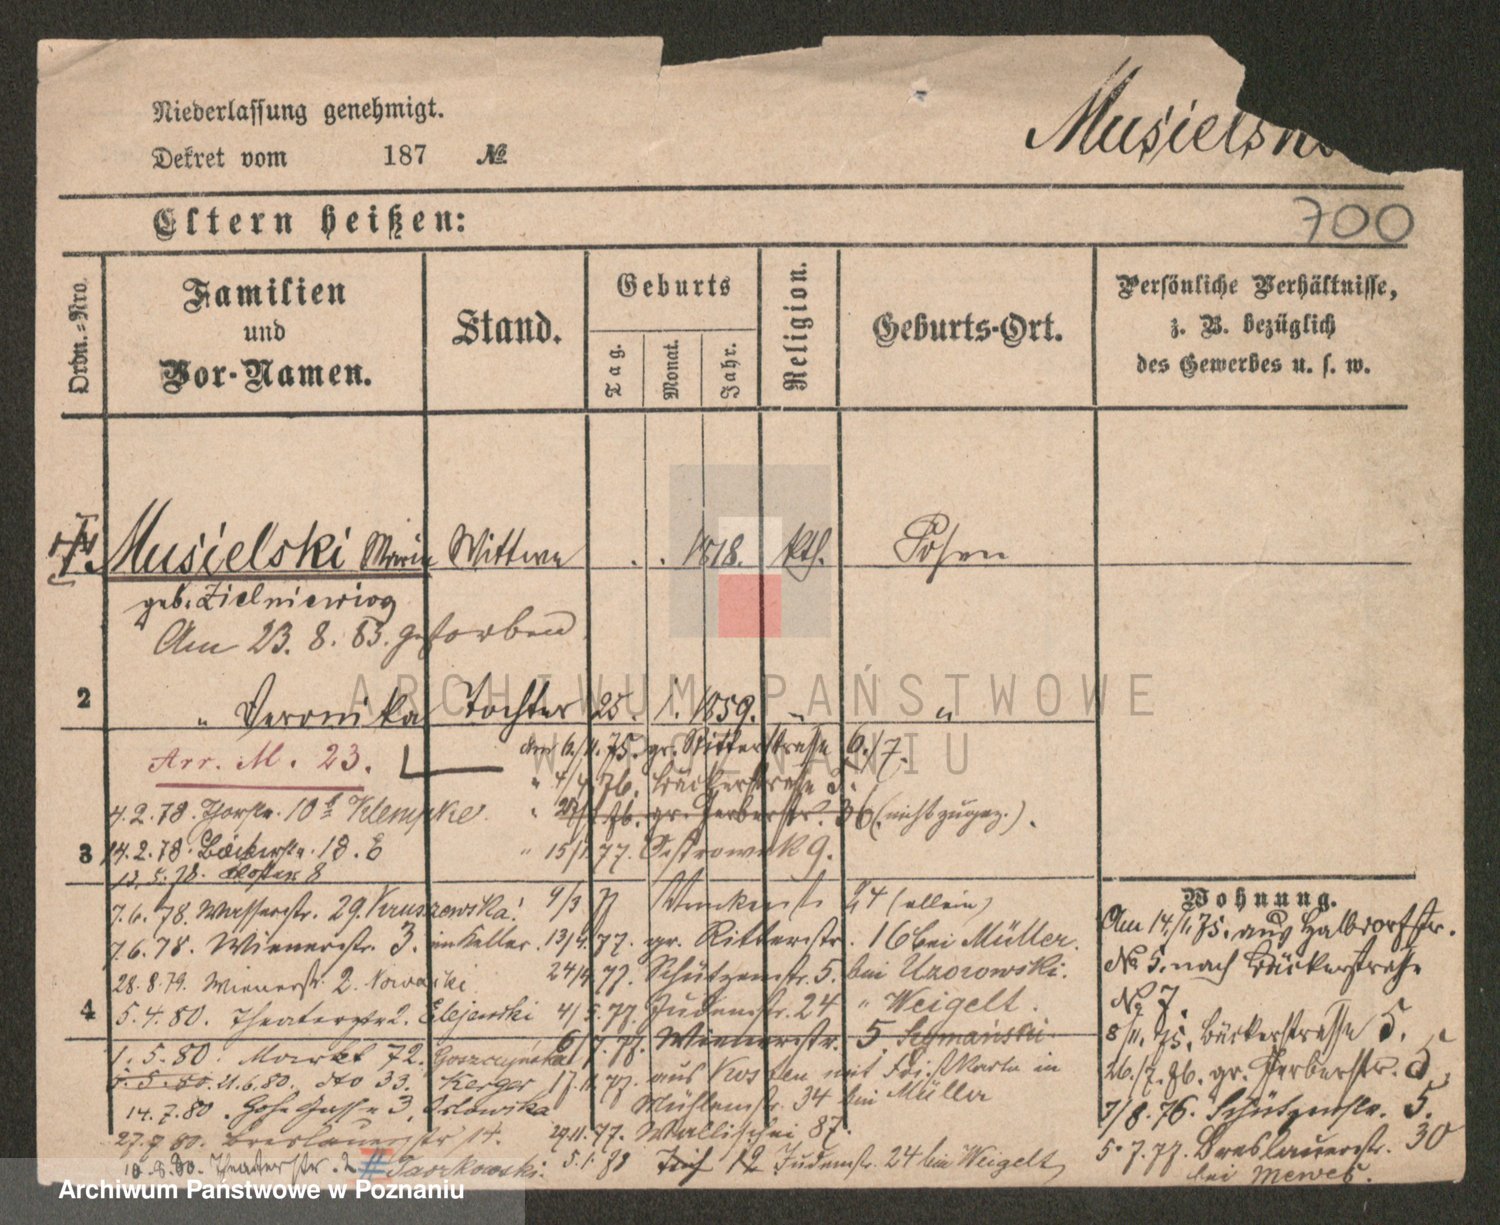 Niederlassung genehmigt.
Dekret vom 187 №
Musielski
Eltern heißen:
700
Ordn.-Nro.
Familien
und
Vor-Namen.
Stand.
Geburts
Tag.
Monat.
Jahr.
Religion.
Geburts-Ort.
Persönliche Verhältnisse,
z. B. bezüglich
des Gewerbes u. s. w.
1. Musielski Maria Wittwe . . 1818. kth. Posen
geb. Zielniewicz
Am 23. 8. 83. gestorben
2 " Veronika Tochter 25. 1. 1859. " "
Arr. M. 23.
den 6/11. 75. gr. Ritterstrasse 6./7.
" 4/4 76. Bäckerstrasse 3.
4. 2. 78. Thorstr. 10a Klempke.
" gr. Gerberstr. 36 (nicht zugez.).
3 14. 2. 78. Bäckerstr. 18. E
" 15/1. 77. Ostrowek 9.
13. 5. 78. Kloster 8
7. 6. 78. Wasserstr. 29. Kruszewska.
9/3 77 24 (allein)
7. 6. 78. Wienerstr. 3. im Keller.
13/4. 77. gr. Ritterstr. 16 bei Müller.
28. 8. 79. Wienerstr. 2. Nowacki
24/4. 77. Schützenstr. 5. bei Uzorowski.
4 5. 4. 80. Theaterstr 2.
4/5. 77. Judenstr. 24 " Weigelt.
6/7. 77. Wienerstr. 5. Szymański
1. 5. 80. Markt 72. Goszczyńska
17. 11. 77. aus Kosten mit Karte in
21. 6. 80. dto 33. Kerger
Mühlenstr. 34 bei Müller
14. 7. 80. Hohe Gasse 3, Orlowska
27. 7 80. Breslauerstr 14.
29. 11. 77. Wallischei 87.
10. 8. 80. Theaterstr. 2
5. 1. 80 Judenstr. 24 bei Weigelt
Wohnung.
Am 14./1. 75. aus Halbdorfstr.
№ 5. nach Bäckerstrasse
№ 7.
8/11. 75. Bäckerstrasse 5.
26./7. 76. gr. Gerberstr. 5,
7/8. 76. Schützenstr. 5.
5. 7. 77. Breslauerstr. 30
bei Mewes.
ARCHIWUM PAŃSTWOWE
W POZNANIU
Archiwum Państwowe w Poznaniu